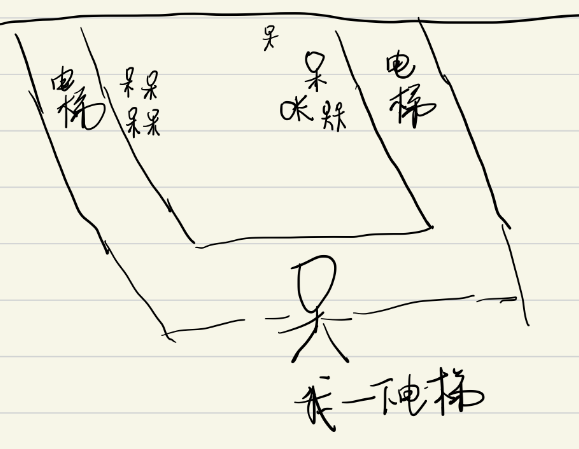 电梯
电梯
我一下电梯